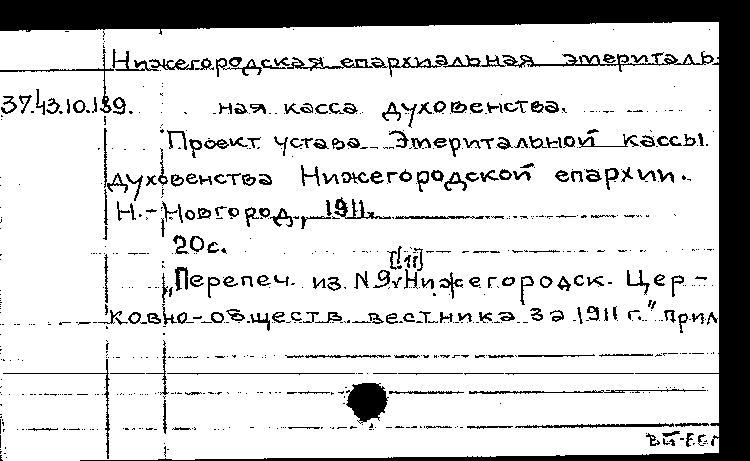 Нижегородская епархиальная эмериталь-
37.43.10.139. ная касса духовенства.
Проект устава Эмеритальной кассы
духовенства Нижегородской епархии.
Н.-Новгород, 1911.
20с.
[!11]
„Перепеч. из N 9 Нижегородск. Цер-
ковно-обществ. вестника за 1911 г." прил